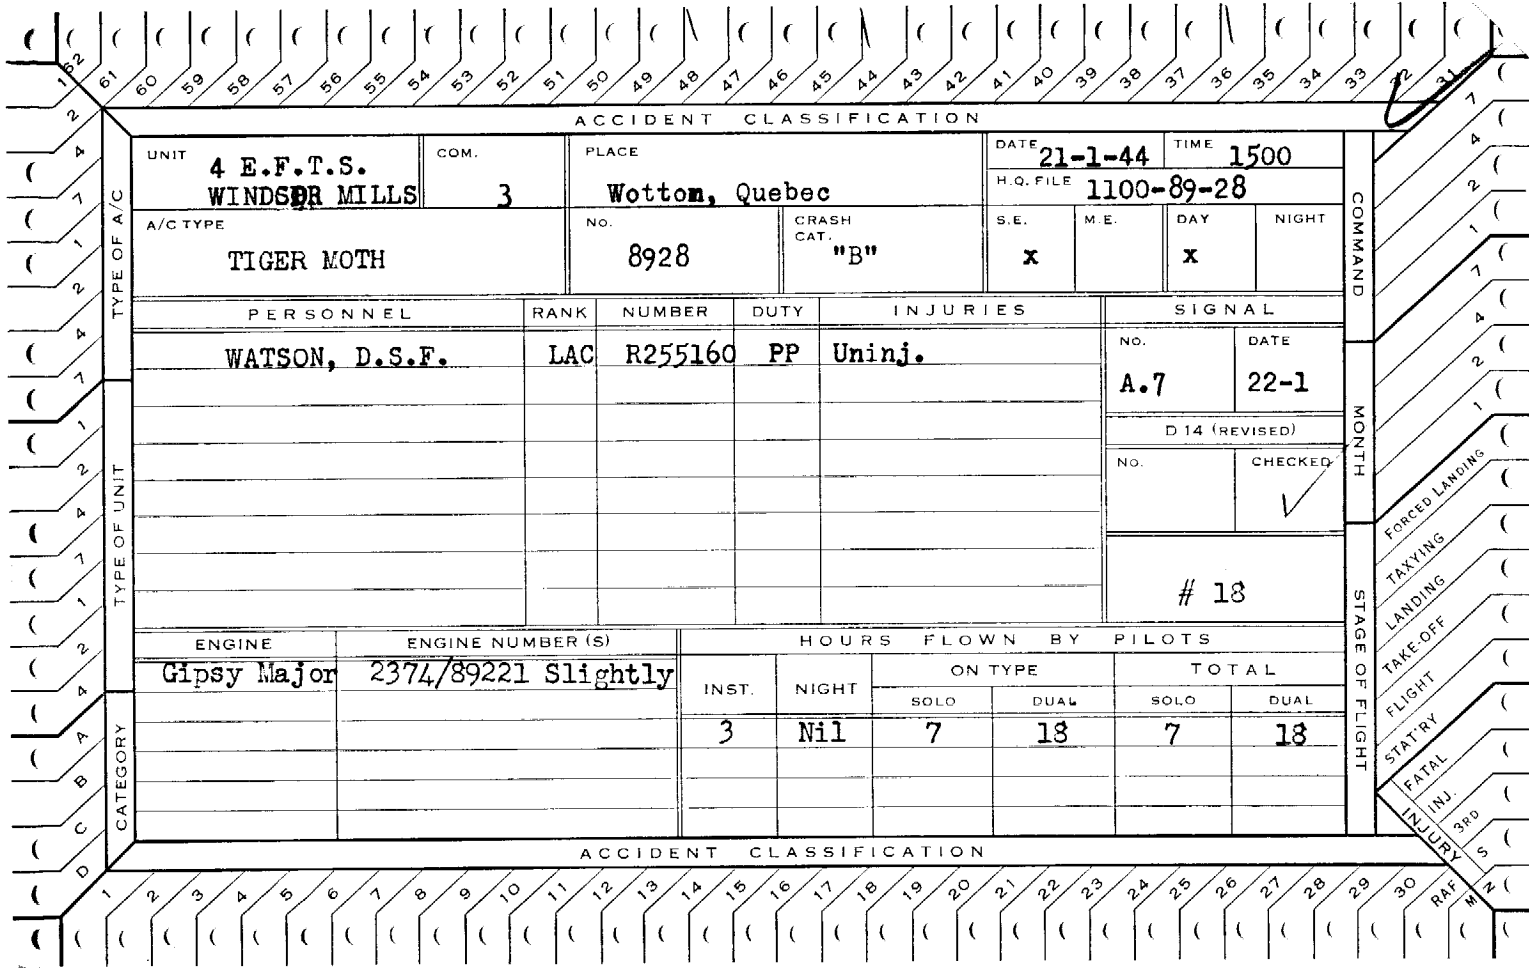 62 61 60 59 58 57 56 55 54 53 52 51 50 49 48 47 46 45 44 43 42 41 40 39 38 37 36 35 34 33 32 31
ACCIDENT CLASSIFICATION
UNIT 4 E.F.T.S. WINDSOR MILLS
COM. 3
PLACE Wottom, Quebec
DATE 21-1-44
TIME 1500
H.Q. FILE 1100-89-28
A/C TYPE TIGER MOTH
No. 8928
CRASH CAT. "B"
S.E. x
M.E.
DAY x
NIGHT
PERSONNEL RANK NUMBER DUTY INJURIES
WATSON, D.S.F. LAC R255160 PP Uninj.
SIGNAL
No. A.7
DATE 22-1
D 14 (REVISED)
No.
CHECKED ✓
# 18
ENGINE ENGINE NUMBER (S)
Gipsy Major 2374/89221 Slightly
HOURS FLOWN BY PILOTS
INST. NIGHT ON TYPE TOTAL
SOLO DUAL SOLO DUAL
3 Nil 7 18 7 18
ACCIDENT CLASSIFICATION
1 2 3 4 5 6 7 8 9 10 11 12 13 14 15 16 17 18 19 20 21 22 23 24 25 26 27 28 29 30 RAF M N
TYPE OF A/C
1 2 4 7 1 2 4 7
TYPE OF UNIT
1 2 4 7 1 2 4
CATEGORY
A B C D
COMMAND
7 4 2 1
MONTH
7 4 2 1
STAGE OF FLIGHT
FORCED LANDING
TAXYING
LANDING
TAKE-OFF
FLIGHT
STAT'RY
INJURY
FATAL
INJ.
3RD
S